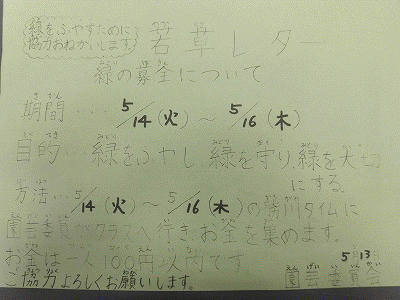 緑をふやすために
協力おねがいします。
若草レター
緑の募金について
期間‥‥5/14(火)～5/16(木)
目的‥緑をふやし、緑を守り、緑を大切
にする。
方法‥5/14(火)～5/16(木)の タイムに
園芸委員がクラスへ行き、お金を集めます。
お金は一人100円以内です。
ご協力よろしくお願いします。
5 13
園芸委員会